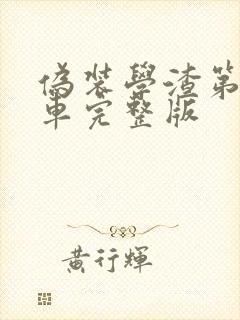 偽裝學渣第
車完整版
黃行輝